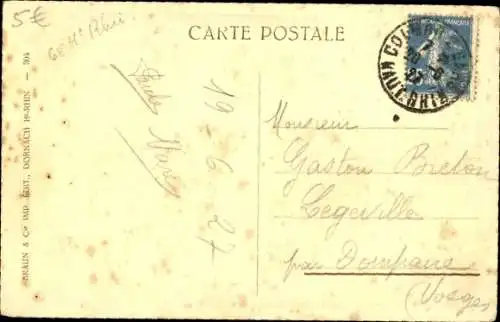 5€
68 Ht Rhin
CARTE POSTALE
COLMAR
HAUT-RHIN
19 - 6 27
Monsieur
Gaston Breton
Legeville
par Dompaire
(Vosges)
BRAUN & Cie IMP. ÉDIT., DORNACH Ht-RHIN — 304